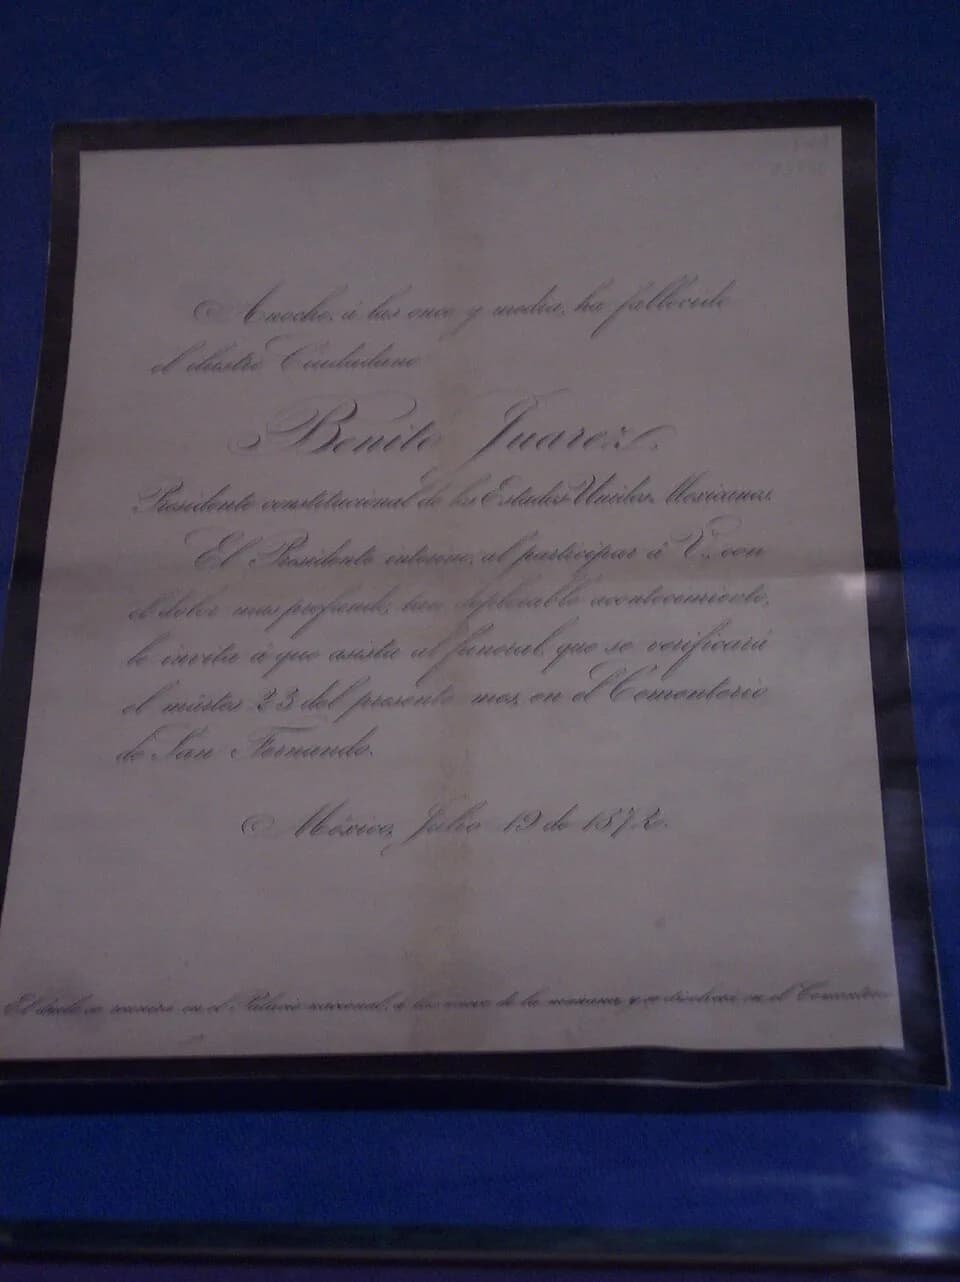 Anoche, á las once y media, ha fallecido
el ilustre Ciudadano
Benito Juarez
Presidente constitucional de los Estados-Unidos Mexicanos.
El Presidente interino, al participar á V., con
el dolor mas profundo, tan deplorable acontecimiento,
le invita á que asista al funeral, que se verificará
el mártes 23 del presente mes, en el Cementerio
de San Fernando.
México, Julio 19 de 1872.
El duelo se reunirá en el Palacio nacional, á las nueve de la mañana y se despedirá en el Cementerio